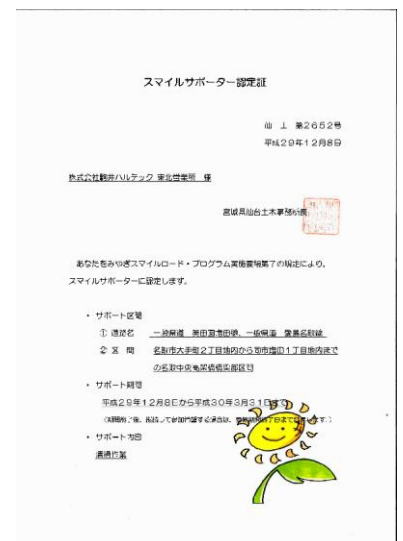 スマイルサポーター認定証
仙 土 第2652号
平成29年12月8日
株式会社駒井ハルテック 東北営業所 様
宮城県仙台土木事務所長
あなたをみやぎスマイルロード・プログラム実施要領第7の規定により、
スマイルサポーターに認定します。
・ サポート区間
① 路線名 一般県道 閖上港線、一般県道 愛島名取線
② 区 間 名取市大手町2丁目地内から同市増田1丁目地内まで
の名取中央高架橋橋梁部区間
・ サポート期間
平成29年12月8日から平成30年3月31日まで
・ サポート内容
清掃作業